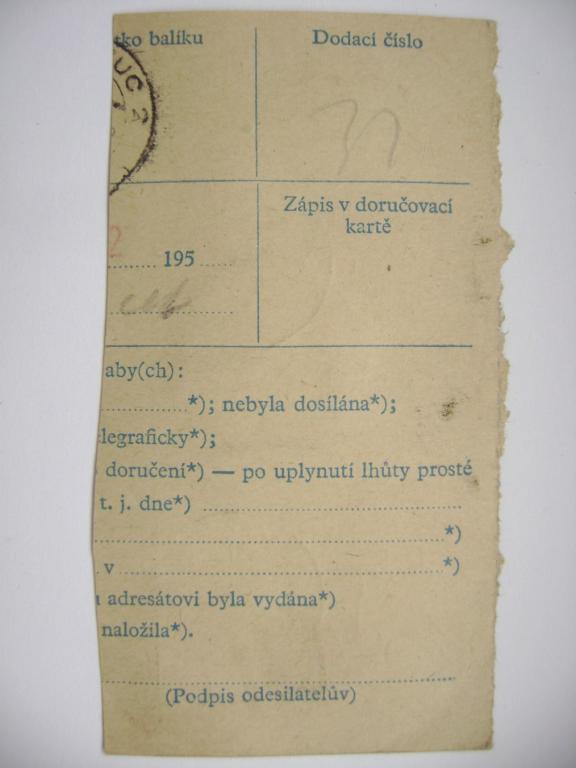 tko balíku
Dodací číslo
UC 2
Zápis v doručovací
kartě
2
195
aby(ch):
*); nebyla dosílána*);
legraficky*);
doručení*) — po uplynutí lhůty prosté
t. j. dne*)
*)
v *)
adresátovi byla vydána*)
naložila*).
(Podpis odesilatelův)